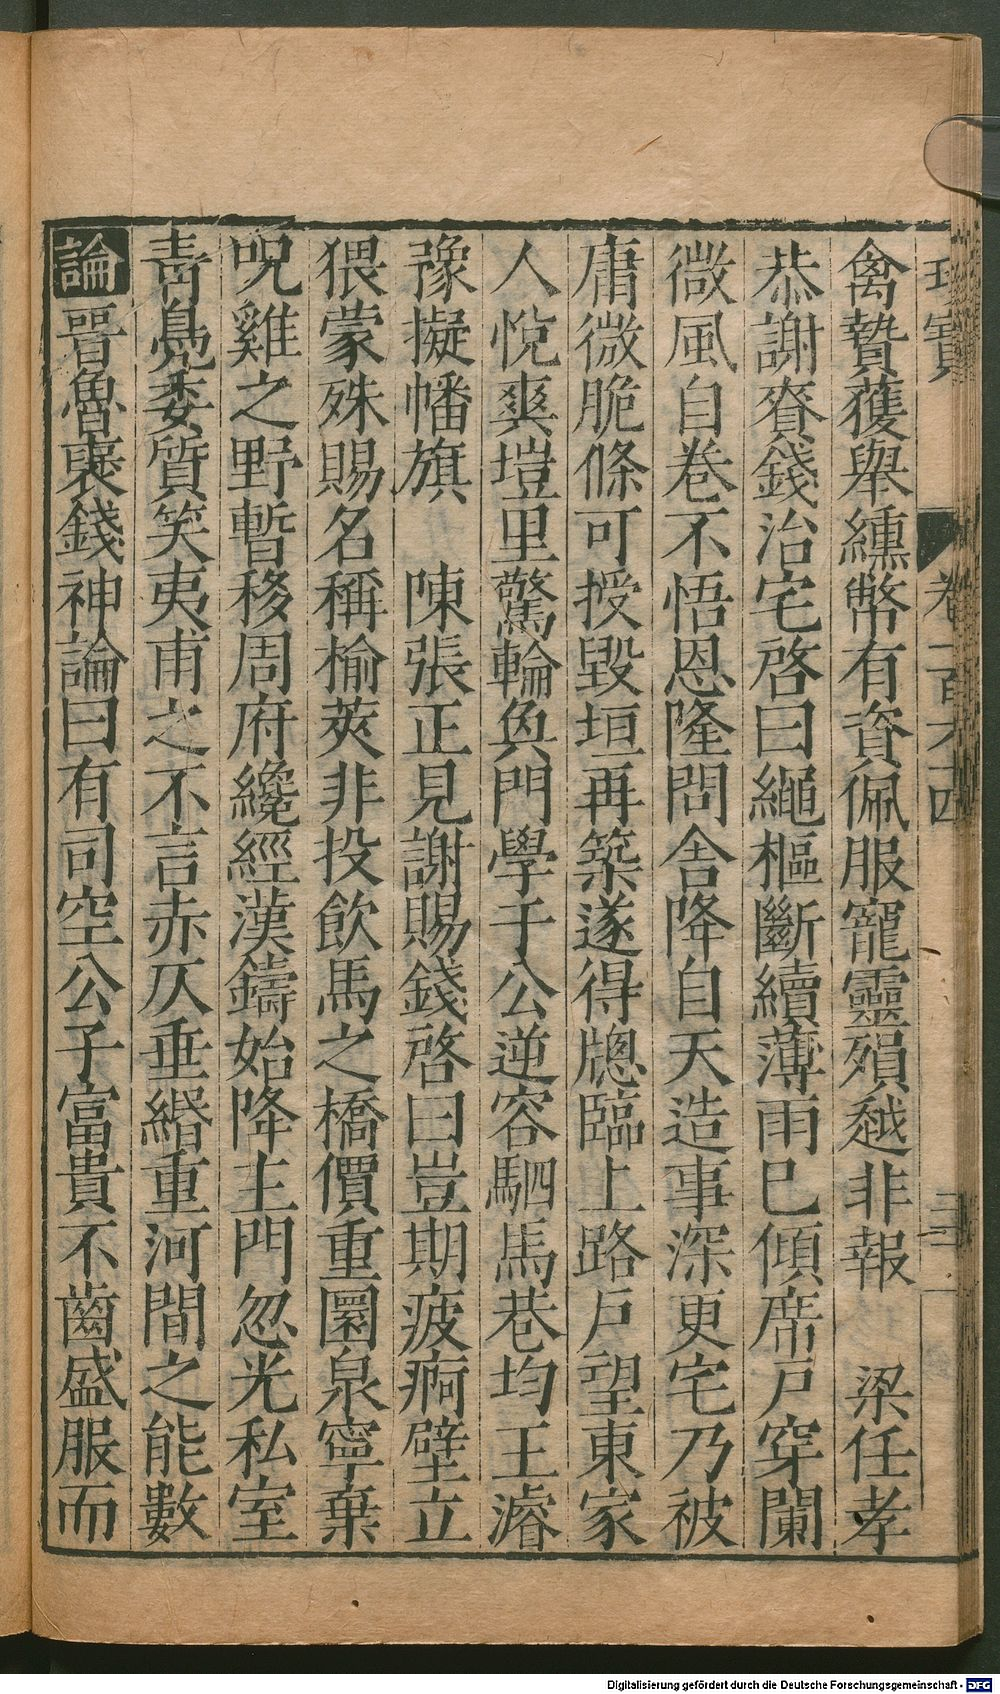 禽贄獲舉纁幣有資佩服寵靈殞越非報　梁任孝
恭謝賚錢治宅啓曰繩樞斷續薄雨巳傾席戸穿闌
微風自卷不悟恩隆問舍降自天造事深更宅乃被
庸微脆條可授毀垣再築遂得牕臨上路戸望東家
人悅爽塏里驚輪奐門學于公逆容駟馬巷均王濬
豫擬幡旗　陳張正見謝賜錢啓曰豈期疲痾壁立
猥蒙殊賜名稱榆莢非投飲馬之橋價重圜泉寧棄
呪雞之野暫移周府纔經漢鑄始降主門忽光私室
靑鳧委質笑夷甫之不言赤仄垂緡重河間之能數
論晉魯襃錢神論曰有司空公子富貴不齒盛服而
卷一百六十四
Digitalisierung gefördert durch die Deutsche Forschungsgemeinschaft - DFG